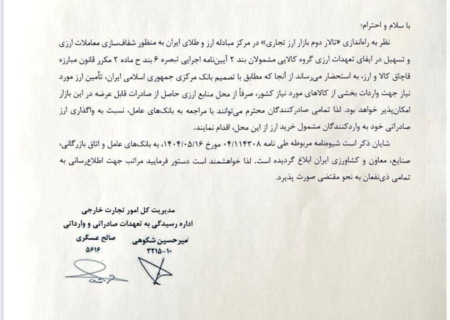 با سلام و احترام؛
نظر به راه‌اندازی «تالار دوم بازار ارز تجاری» در مرکز مبادله ارز و طلای ایران به منظور شفاف‌سازی معاملات ارزی
و تسهیل در ایفای تعهدات ارزی گروه کالایی مشمولان بند ۲ آیین‌نامه اجرایی تبصره ۶ بند ح ماده ۲ مکرر قانون مبارزه
قاچاق کالا و ارز، به استحضار می‌رساند از آنجا که مطابق با تصمیم بانک مرکزی جمهوری اسلامی ایران، تأمین ارز مورد
نیاز جهت واردات بخشی از کالاهای مورد نیاز کشور، صرفاً از محل منابع ارزی حاصل از صادرات قابل عرضه در این بازار
امکان‌پذیر خواهد بود. لذا تمامی صادرکنندگان محترم می‌توانند با مراجعه به بانک‌های عامل، نسبت به واگذاری ارز
صادراتی خود به واردکنندگان مشمول خرید ارز از این محل، اقدام نمایند.
شایان ذکر است شیوه‌نامه مربوطه طی نامه ۰۴/۱۱۴۳۰۸ مورخ ۱۴۰۴/۰۵/۱۶، به بانک‌های عامل و اتاق بازرگانی،
صنایع، معاون و کشاورزی ایران ابلاغ گردیده است. لذا خواهشمند است دستور فرمایید مراتب جهت اطلاع‌رسانی به
تمامی ذی‌نفعان به نحو مقتضی صورت پذیرد.
مدیریت کل امور تجارت خارجی
اداره رسیدگی به تعهدات صادراتی و وارداتی
امیرحسین شکوهی صالح عسگری
۳۲۱۵-۱۰ ۵۶۱۶